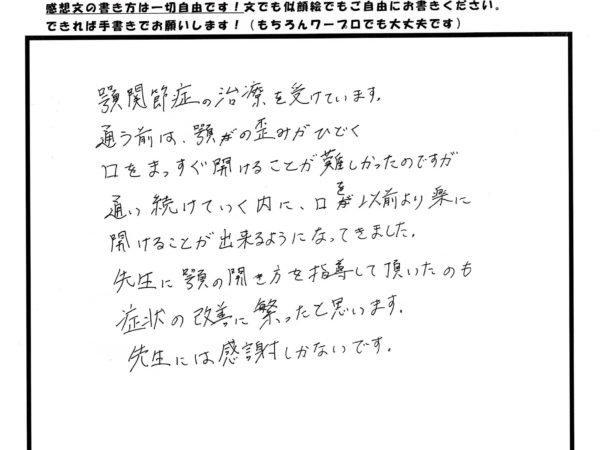 感想文の書き方は一切自由です！文でも似顔絵でもご自由にお書きください。
できれば手書きでお願いします！（もちろんワープロでも大丈夫です）
顎関節症の治療を受けています。
通う前は、顎がの歪みがひどく
口をまっすぐ開けることが難しかったのですが
通い続けていく内に、口を以前より楽に
開けることが出来るようになってきました。
先生に顎の開き方を指導して頂いたのも
症状の改善に繋ったと思います。
先生には感謝しかないです。